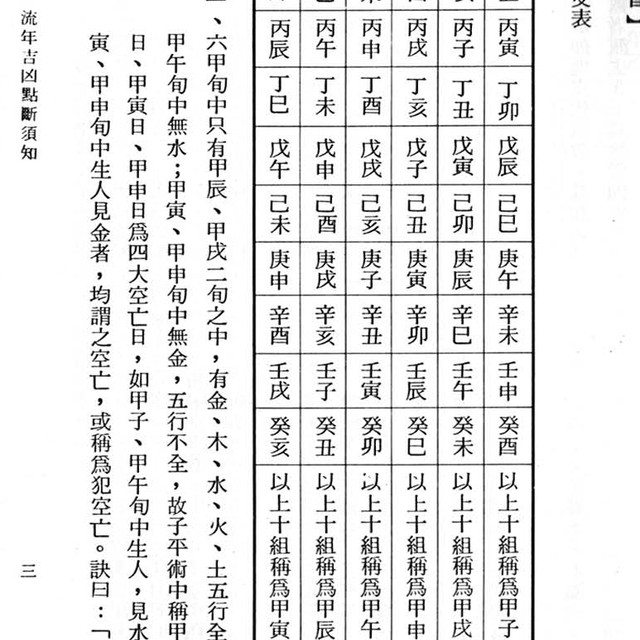 支表
丙寅 丁卯 戊辰 己巳 庚午 辛未 壬申 癸酉 以上十組稱爲甲子
丙子 丁丑 戊寅 己卯 庚辰 辛巳 壬午 癸未 以上十組稱爲甲戌
丙戌 丁亥 戊子 己丑 庚寅 辛卯 壬辰 癸巳 以上十組稱爲甲申
丙申 丁酉 戊戌 己亥 庚子 辛丑 壬寅 癸卯 以上十組稱爲甲午
丙午 丁未 戊申 己酉 庚戌 辛亥 壬子 癸丑 以上十組稱爲甲辰
丙辰 丁巳 戊午 己未 庚申 辛酉 壬戌 癸亥 以上十組稱爲甲寅
、六甲旬中只有甲辰、甲戌二旬之中,有金、木、水、火、土五行全
甲午旬中無水;甲寅、甲申旬中無金,五行不全,故子平術中稱甲
日、甲寅日、甲申日爲四大空亡日,如甲子、甲午旬中生人,見水
寅、甲申旬中生人見金者,均謂之空亡,或稱爲犯空亡。訣曰:「
流年吉凶點斷須知
三